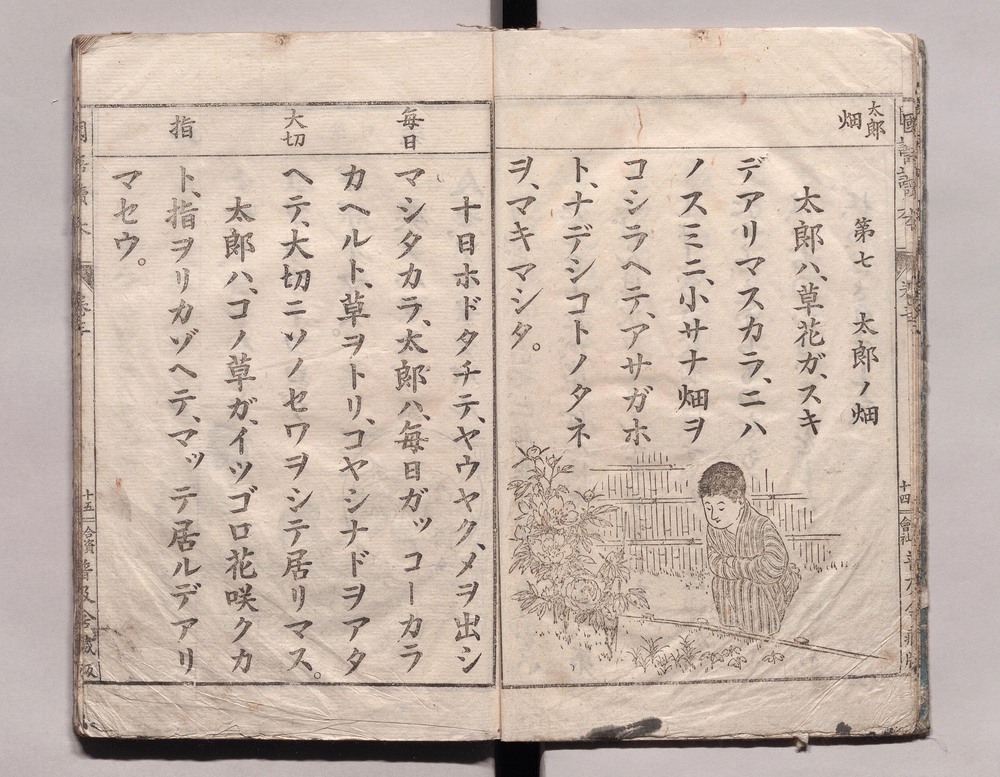 太郎
畑
第七 太郎ノ畑
太郎ハ、草花ガ、スキ
デアリマスカラ、ニハ
ノスミニ、小サナ畑ヲ
コシラヘテ、アサガホ
ト、ナデシコトノタネ
ヲ、マキマシタ。
十四
毎日
大切
指
十日ホドタチテ、ヤウヤク、メヲ出シ
マシタカラ、太郎ハ、毎日ガッコーカラ
カヘルト、草ヲトリ、コヤシナドヲアタ
ヘテ、大切ニソノセワヲシテ居リマス。
太郎ハ、コノ草ガ、イツゴロ花咲クカ
ト、指ヲリカゾヘテ、マッテ居ルデアリ
マセウ。
十五
合資